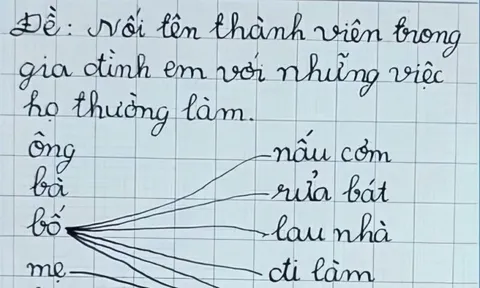 Đề: Nối tên thành viên trong
gia đình em với những việc
họ thường làm.
ông
nấu cơm
bà
rửa bát
bố
lau nhà
mẹ
đi làm